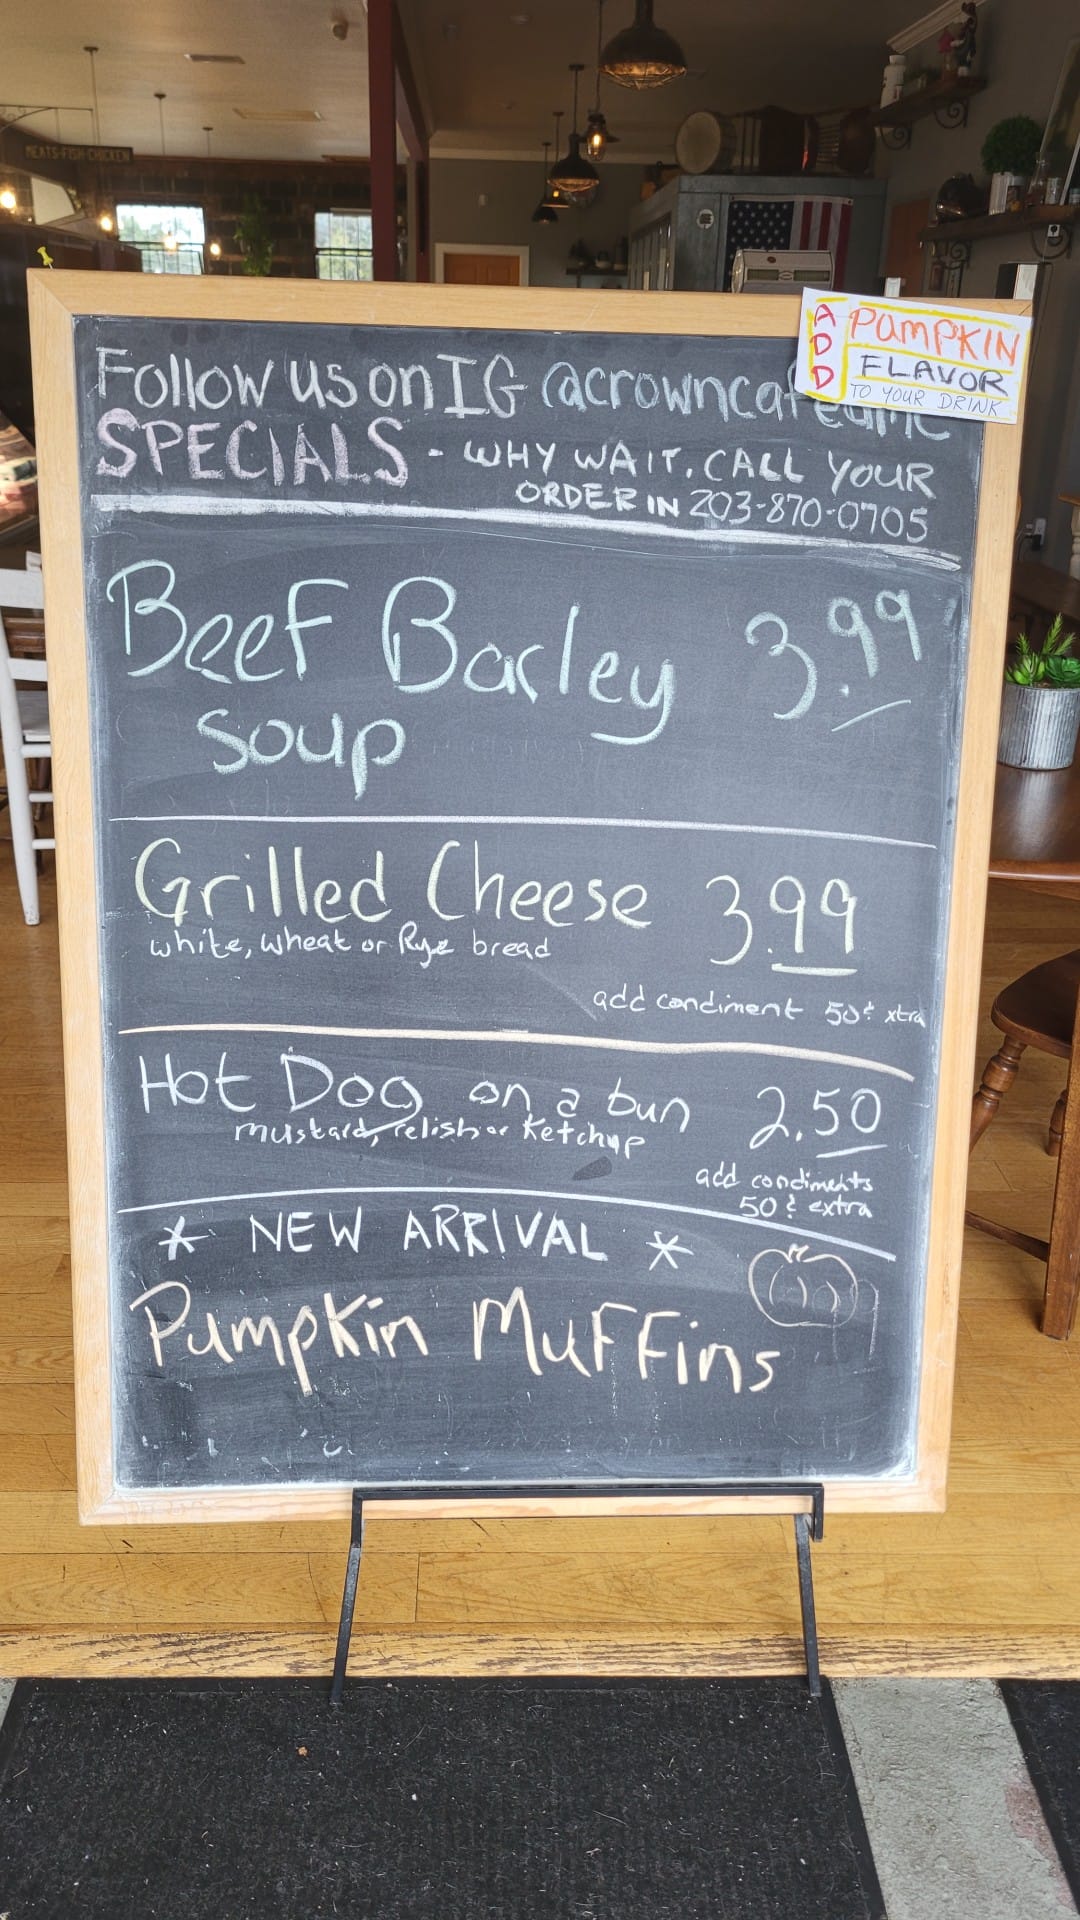 MEATS-FISH-CHICKEN
ADD
PUMPKIN
FLAVOR
TO YOUR DRINK
Follow us on IG
SPECIALS - WHY WAIT. CALL YOUR
ORDER IN 203-870-0705
Beef Barley 3.99
soup
Grilled Cheese 3.99
white, wheat or Rye bread
add condiment 50¢ xtra
Hot Dog on a bun 2.50
mustard, relish or Ketchup
add condiments
50¢ extra
* NEW ARRIVAL *
Pumpkin Muffins